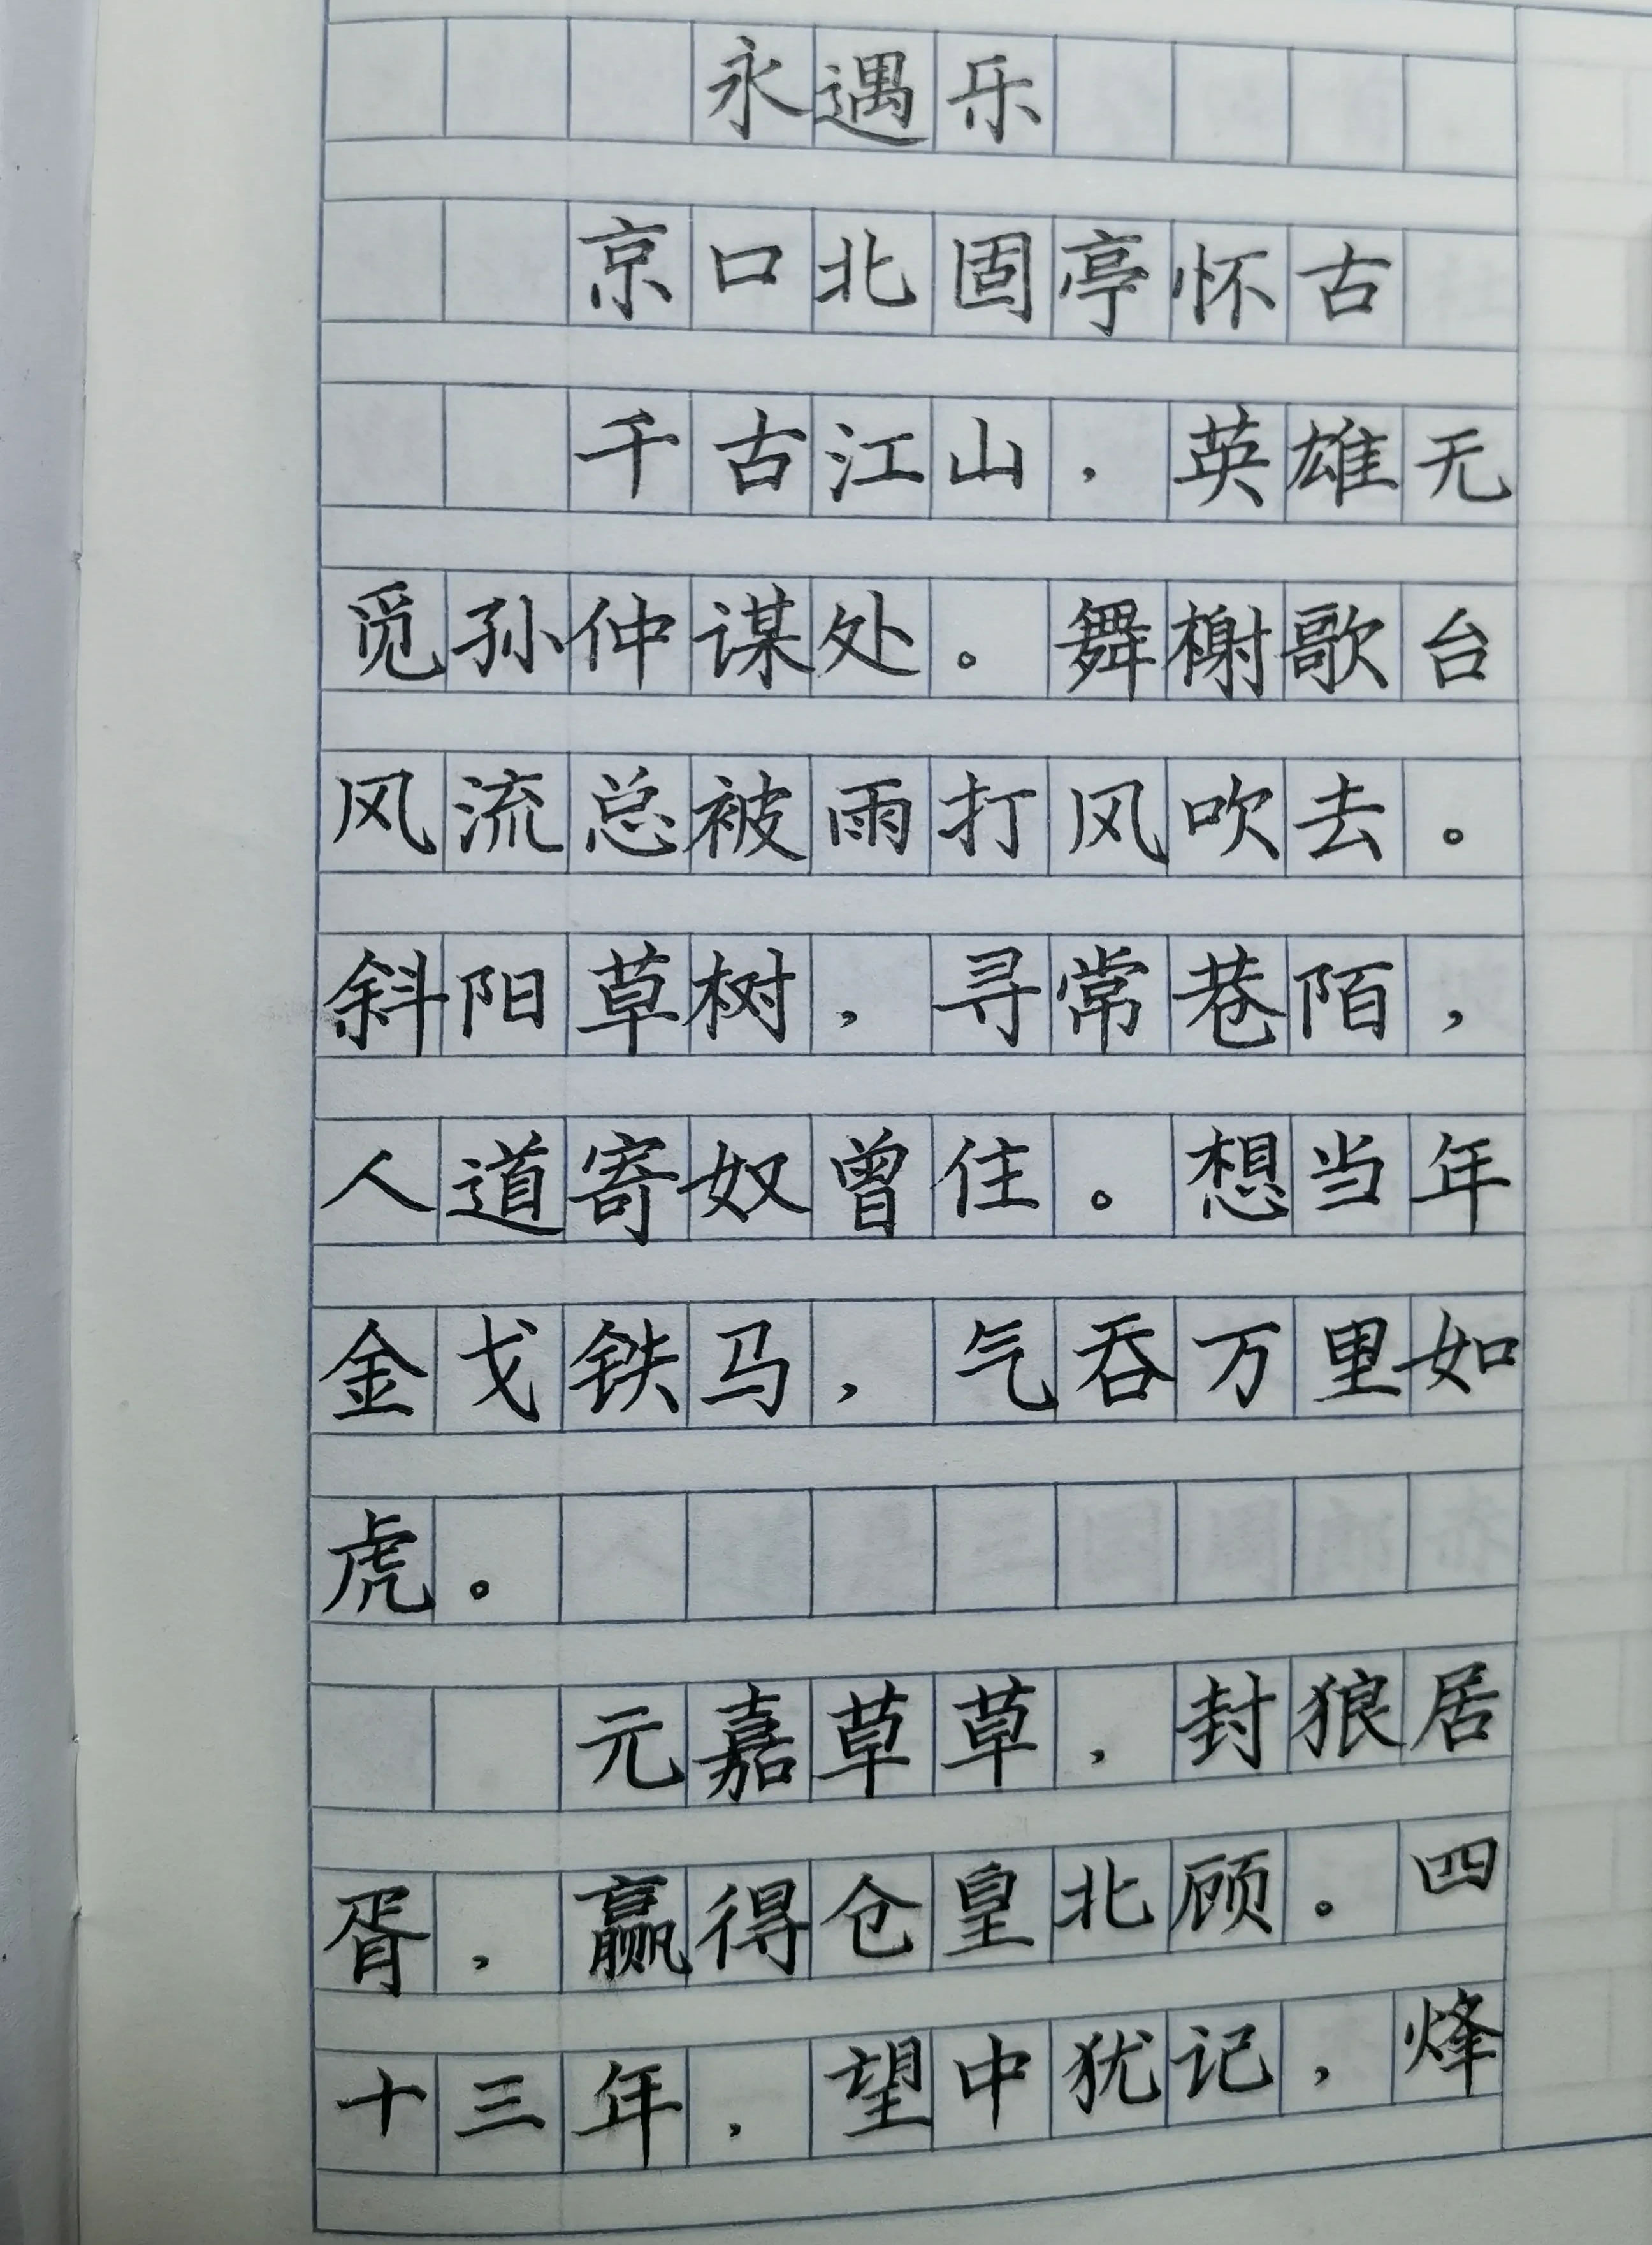 永遇乐
京口北固亭怀古
千古江山，英雄无
觅孙仲谋处。舞榭歌台
风流总被雨打风吹去。
斜阳草树，寻常巷陌，
人道寄奴曾住。想当年
金戈铁马，气吞万里如
虎。
元嘉草草，封狼居
胥，赢得仓皇北顾。四
十三年，望中犹记，烽